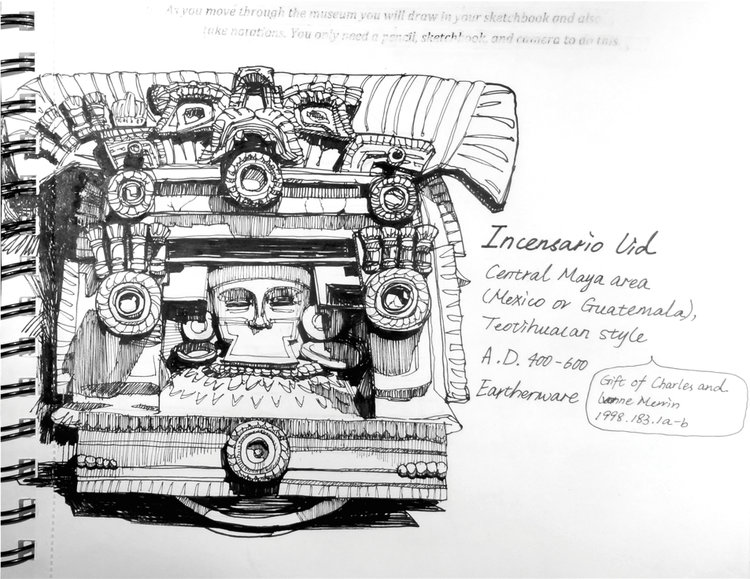 As you move through the museum you will draw in your sketchbook and also
take notations. You only need a pencil, sketchbook, and camera to do this.
Incensario lid
Central Maya area
(Mexico or Guatemala),
Teotihuacan style
A.D. 400-600
Earthenware
Gift of Charles and
Merrin
1998.183.1a-b